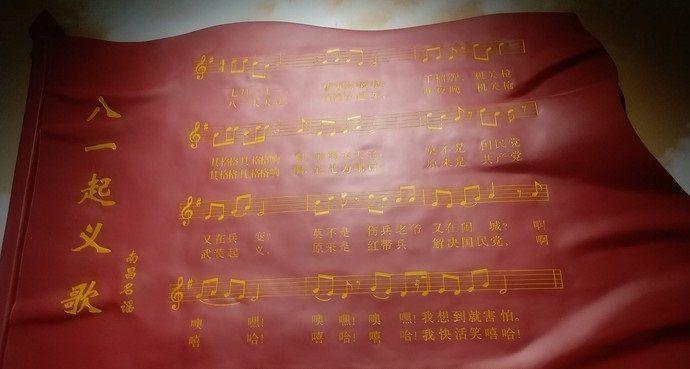 八一起义歌
南昌名谣
手榴弹，机关枪
半夜晚，机关枪
其格格其格格响
其格格其格格响
莫不是 国民党
原来是 共产党
又在兵 变! 莫不是 伤兵老爷 又在闹 城? 啊
武装起 义, 原来是 红带兵 解决国民党, 啊
噢 嘿! 噢 嘿! 噢 嘿! 我想到就害怕。
嘻 哈! 嘻 哈! 嘻 哈! 我快活笑嘻哈!